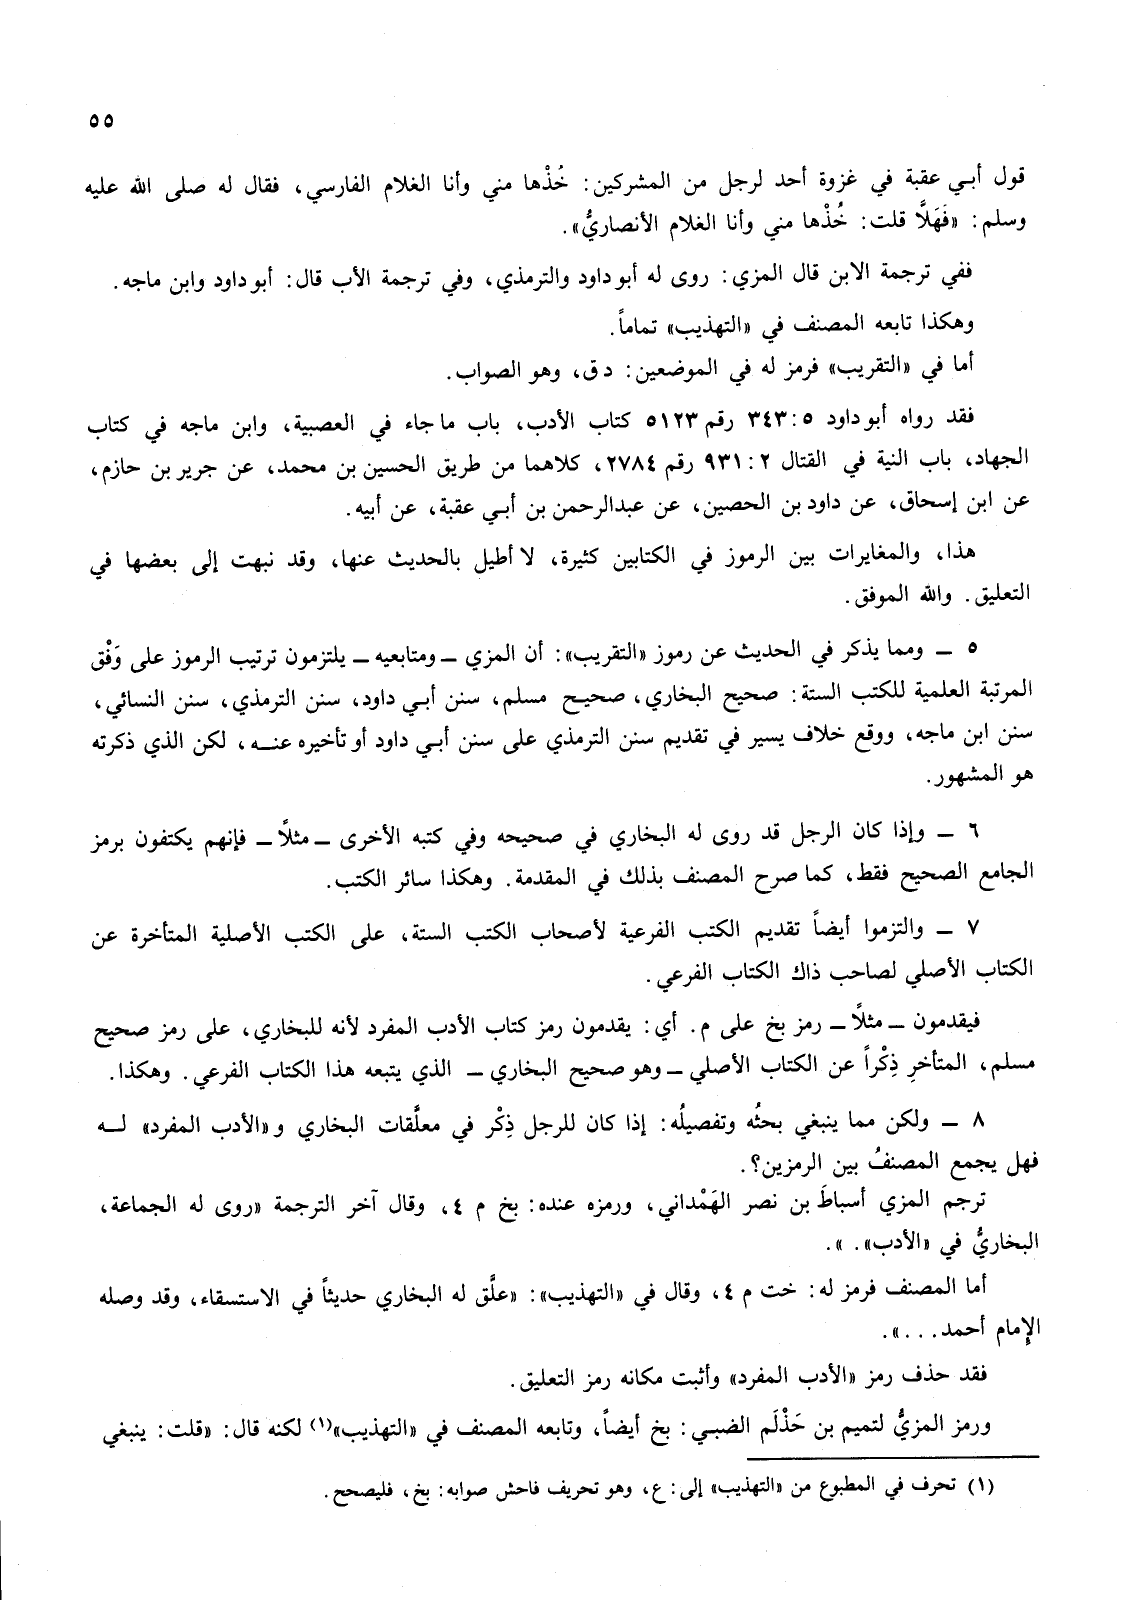 ٥٥
قول أبي عقبة في غزوة أحد لرجل من المشركين: خُذْها مني وأنا الغلام الفارسي، فقال له صلى الله عليه
وسلم: «فَهَلَّا قلت: خُذْها مني وأنا الغلام الأنصاريُّ».
ففي ترجمة الابن قال المزي: روى له أبو داود والترمذي، وفي ترجمة الأب قال: أبو داود وابن ماجه.
وهكذا تابعه المصنف في «التهذيب» تماماً.
أما في «التقريب» فرمز له في الموضعين: د ق، وهو الصواب.
فقد رواه أبو داود ٥: ٣٤٣ رقم ٥١٢٣ كتاب الأدب، باب ما جاء في العصبية، وابن ماجه في كتاب
الجهاد، باب النية في القتال ٢: ٩٣١ رقم ٢٧٨٤، كلاهما من طريق الحسين بن محمد، عن جرير بن حازم،
عن ابن إسحاق، عن داود بن الحصين، عن عبدالرحمن بن أبي عقبة، عن أبيه.
هذا، والمغايرات بين الرموز في الكتابين كثيرة، لا أطيل بالحديث عنها، وقد نبهت إلى بعضها في
التعليق. والله الموفق.
٥ ــ ومما يذكر في الحديث عن رموز «التقريب»: أن المزي ــ ومتابعيه ــ يلتزمون ترتيب الرموز على وَفْق
المرتبة العلمية للكتب الستة: صحيح البخاري، صحيح مسلم، سنن أبي داود، سنن الترمذي، سنن النسائي،
سنن ابن ماجه، ووقع خلاف يسير في تقديم سنن الترمذي على سنن أبي داود أو تأخيره عنه، لكن الذي ذكرته
هو المشهور.
٦ ــ وإذا كان الرجل قد روى له البخاري في صحيحه وفي كتبه الأخرى ــ مثلاً ــ فإنهم يكتفون برمز
الجامع الصحيح فقط، كما صرح المصنف بذلك في المقدمة. وهكذا سائر الكتب.
٧ ــ والتزموا أيضاً تقديم الكتب الفرعية لأصحاب الكتب الستة، على الكتب الأصلية المتأخرة عن
الكتاب الأصلي لصاحب ذاك الكتاب الفرعي.
فيقدمون ــ مثلاً ــ رمز بخ على م. أي: يقدمون رمز كتاب الأدب المفرد لأنه للبخاري، على رمز صحيح
مسلم، المتأخرِ ذِكْراً عن الكتاب الأصلي ــ وهو صحيح البخاري ــ الذي يتبعه هذا الكتاب الفرعي. وهكذا.
٨ ــ ولكن مما ينبغي بحثُه وتفصيلُه: إذا كان للرجل ذِكْر في معلَّقات البخاري و«الأدب المفرد» لـه
فهل يجمع المصنفُ بين الرمزين؟.
ترجم المزي أسباطَ بن نصر الهَمْداني، ورمزه عنده: بخ م ٤، وقال آخر الترجمة «روى له الجماعة،
البخاريُّ في «الأدب». ».
أما المصنف فرمز له: خت م ٤، وقال في «التهذيب»: «علَّق له البخاري حديثاً في الاستسقاء، وقد وصله
الإمام أحمد...».
فقد حذف رمز «الأدب المفرد» وأثبت مكانه رمز التعليق.
ورمز المزيُّ لتميم بن حَذْلَم الضبي: بخ أيضاً، وتابعه المصنف في «التهذيب»(١) لكنه قال: «قلت: ينبغي
(١) تحرف في المطبوع من «التهذيب» إلى: ع، وهو تحريف فاحش صوابه: بخ، فليصحح.